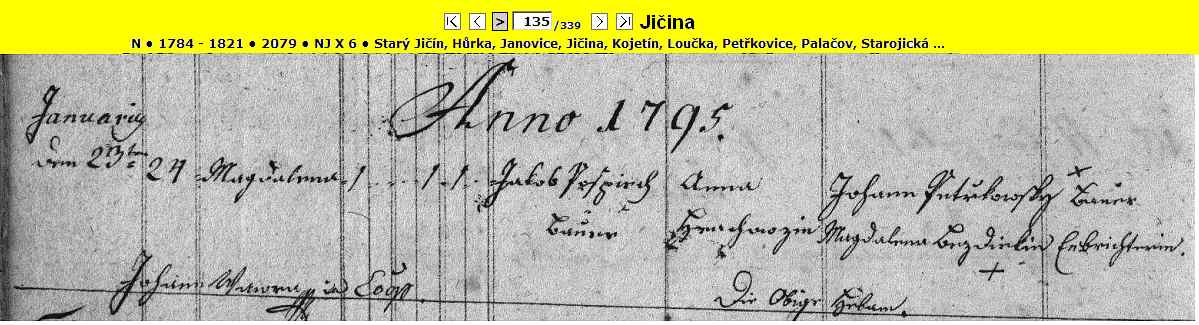 135 /339 Jičina
N ● 1784 - 1821 ● 2079 ● NJ X 6 ● Starý Jičín, Hůrka, Janovice, Jičina, Kojetín, Loučka, Petřkovice, Palačov, Starojická ...
Anno 1795.
Januarius
den 23ten 24 Magdalena 1 1 1 Jakob Anna Johann Petrkowsky + Bauer
Bauer Magdalena Bezdiekin Erbrichterin.
Johann Wawra Coop. +
Die Obige Hebam.